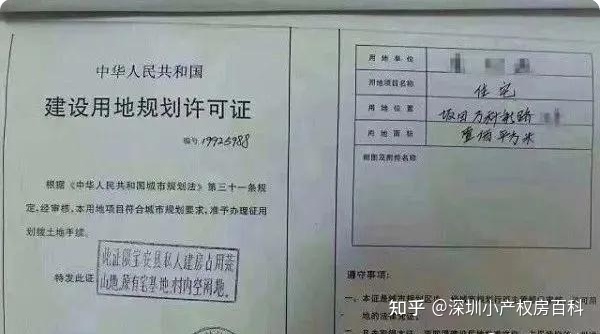 中华人民共和国
建设用地规划许可证
编号 19925988
根据《中华人民共和国城市规划法》第三十一条规
定,经审核,本用地项目符合城市规划要求,准予办理征用
划拨土地手续。
特发此证
此证限宝安县私人建房占用荒
山地、原有宅基地、村内空闲地。
用地单位
用地项目名称
住宅
用地位置
坂田万科
用地面积
壹佰平方米
附图及附件名称
遵守事项:
知乎 @深圳小产权房百科